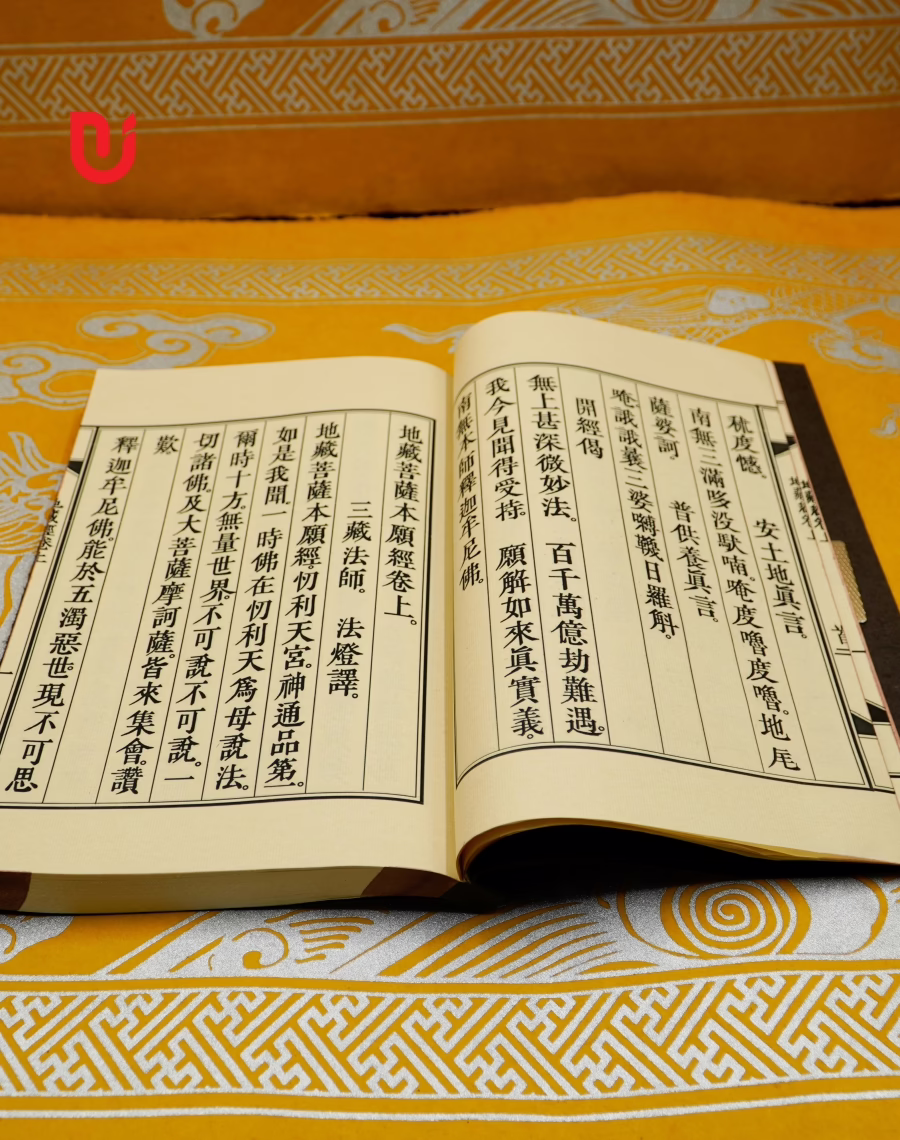 秫度憾。 安土地眞言。
南無三滿哆沒馱喃。唵度嚕度嚕。地尾
薩婆訶 普供養眞言。
唵誐誐曩三婆嚩韈日羅斛。
開經偈
無上甚深微妙法。 百千萬億劫難遇。
我今見聞得受持。 願解如來眞實義。
南無本師釋迦牟尼佛。
地藏菩薩本願經卷上。
三藏法師。 法燈譯。
地藏菩薩本願經。忉利天宮。神通品第一。
如是我聞。一時佛在忉利天爲母說法。
爾時十方。無量世界。不可說不可說。一
切諸佛。及大菩薩摩訶薩。皆來集會。讚
歎
釋迦牟尼佛。能於五濁惡世。現不可思